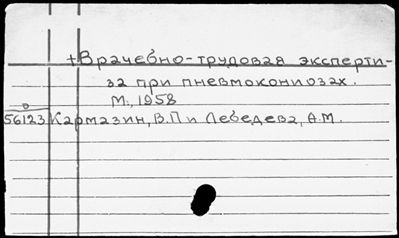 +Врачебно-трудовая эксперти-
за при пневмокониозах.
М., 1958
56123 Кармазин, В.П и Лебедева, А.М.